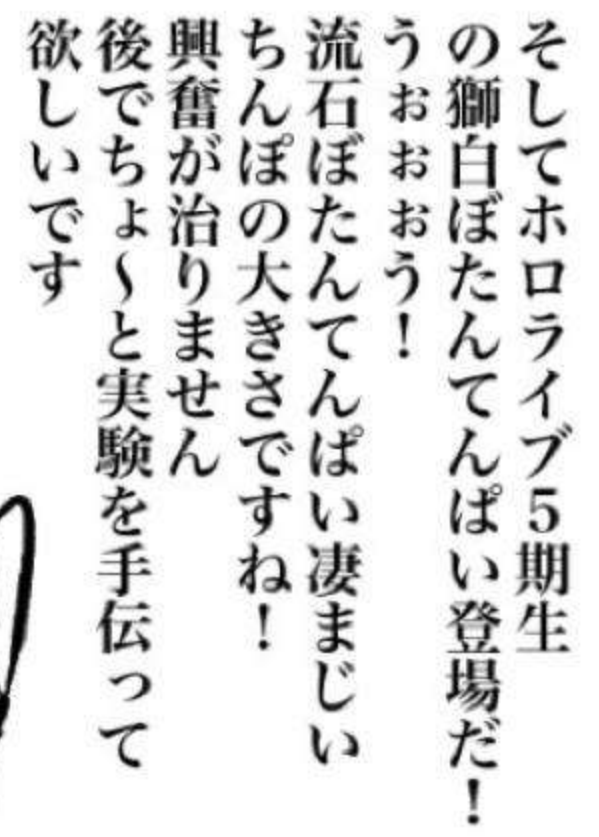 そしてホロライブ5期生
の獅白ぼたんてんぱい登場だ!
うぉぉぉう!
流石ぼたんてんぱい凄まじい
ちんぽの大きさですね!
興奮が治りません
後でちょ~と実験を手伝って
欲しいです